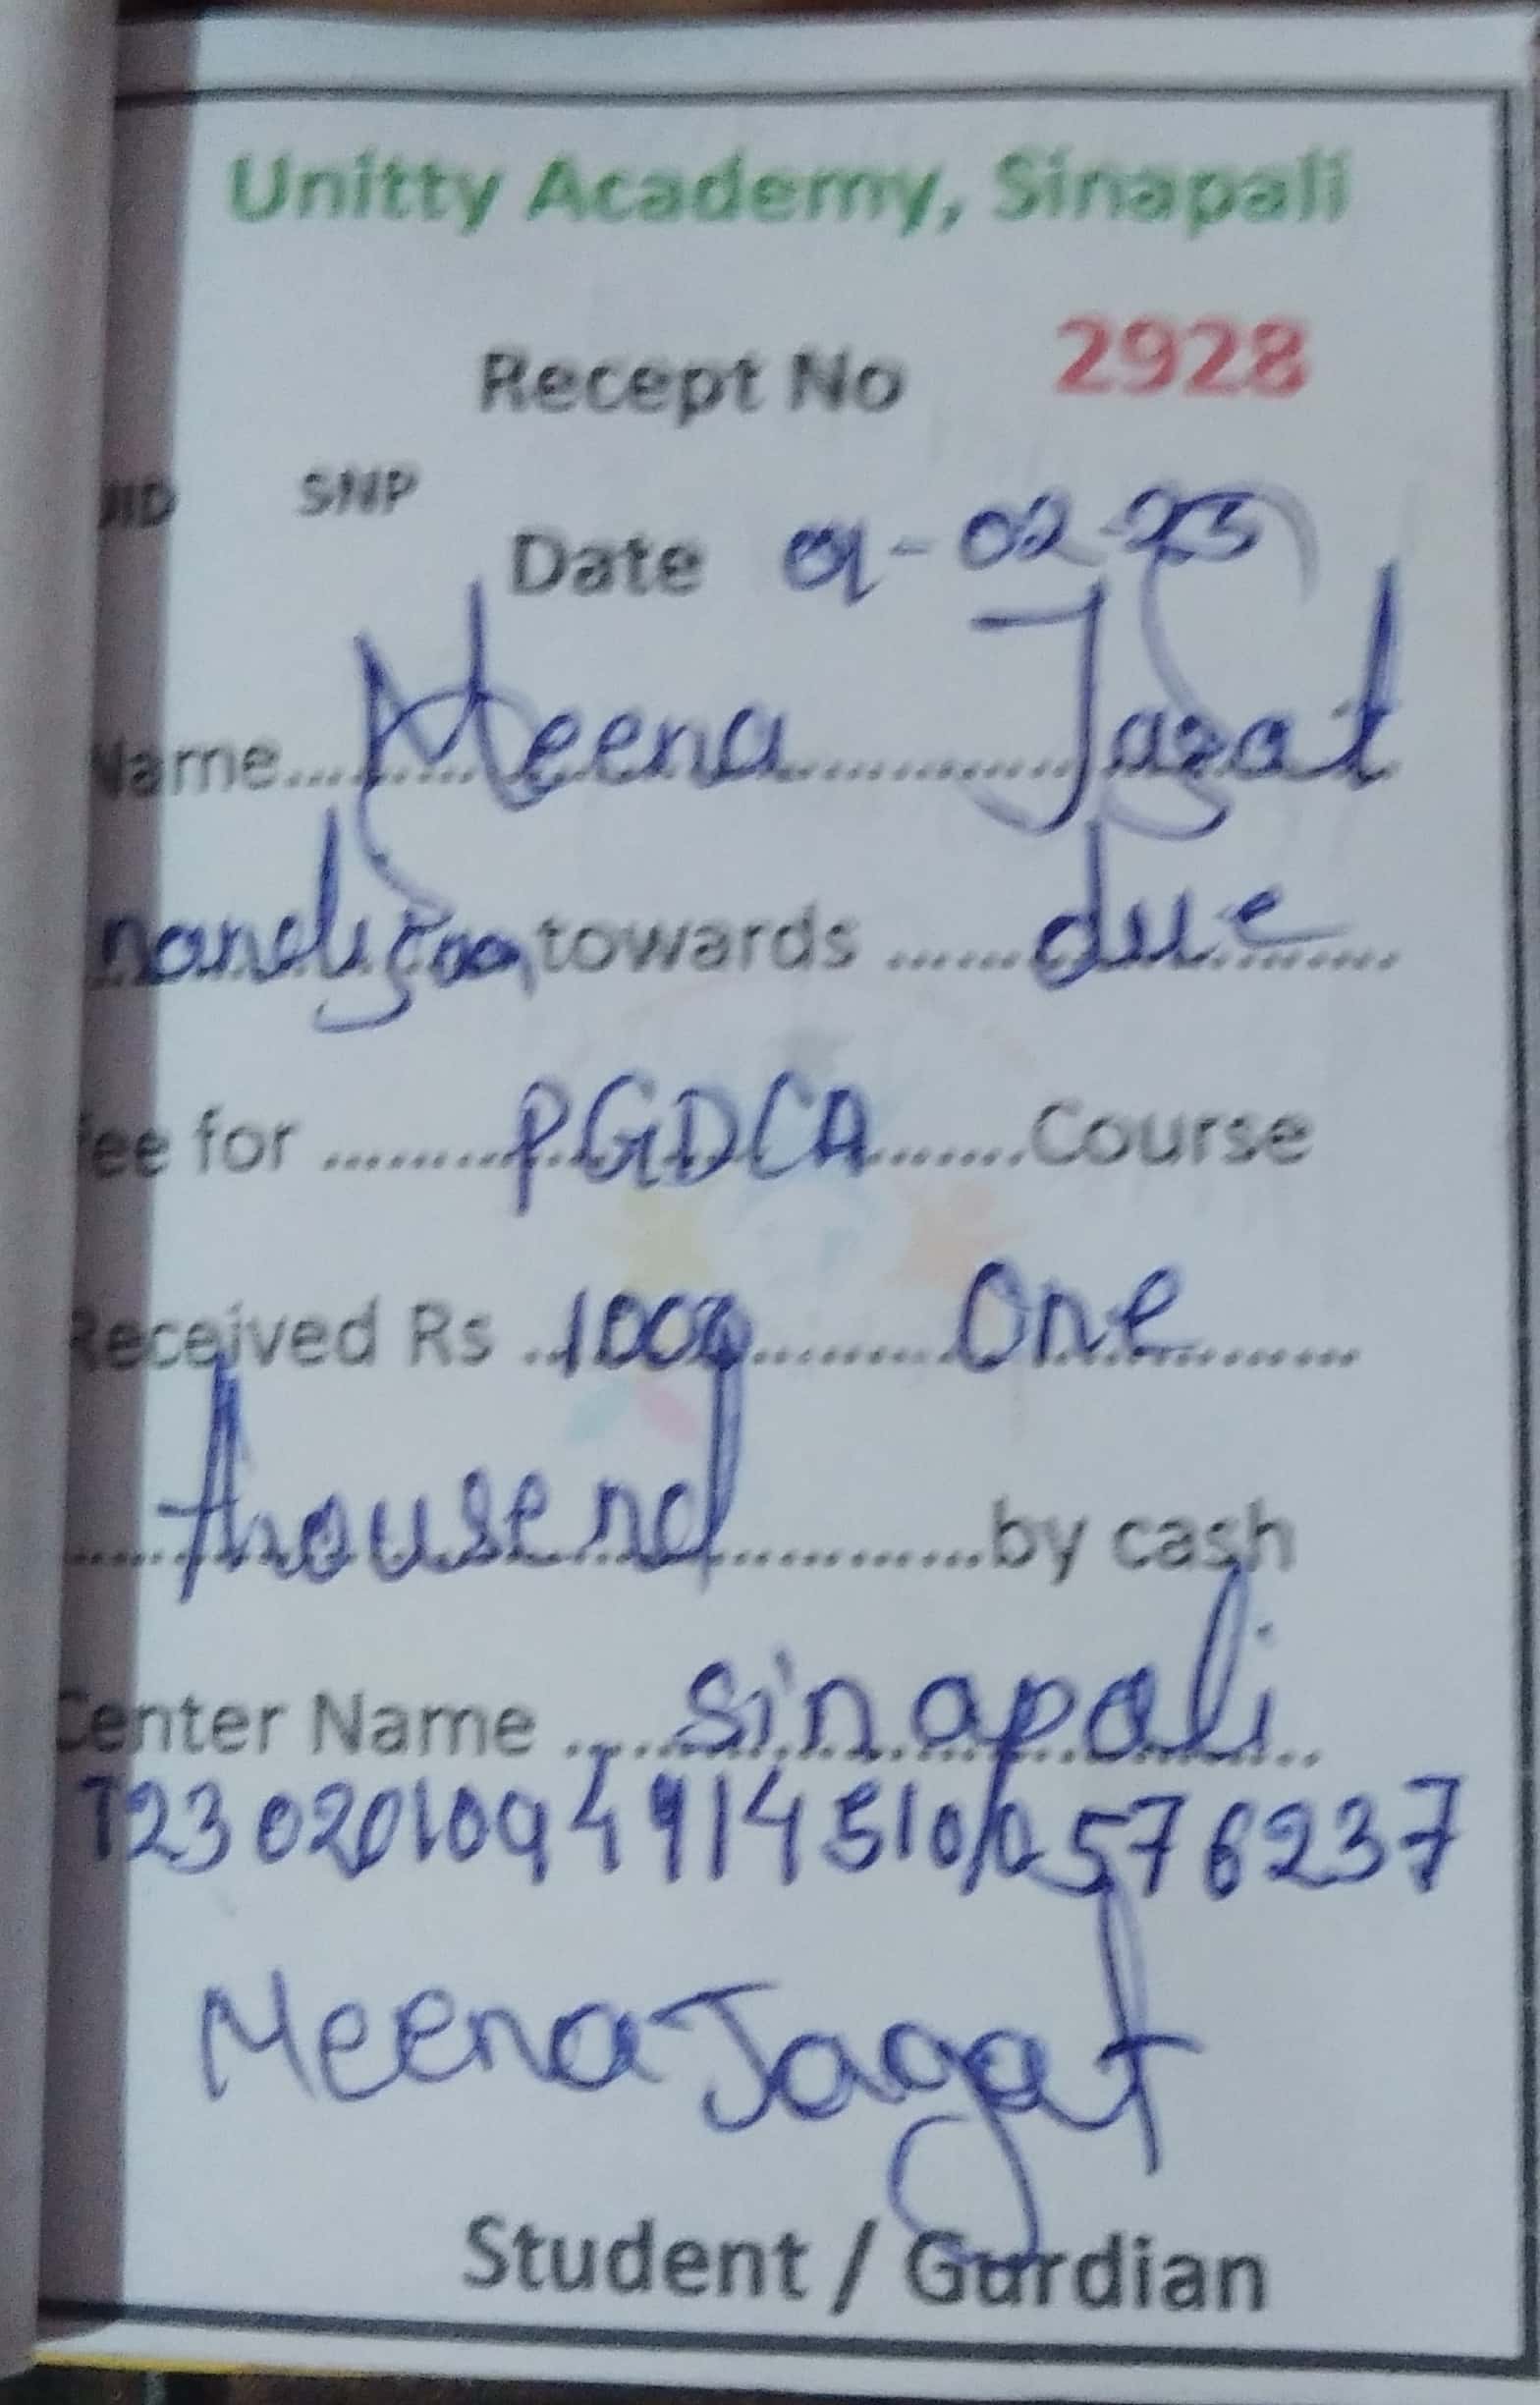 Unitty Academy, Sinapali
Recept No 2928
UID SNP
Date 01-02-23
Name Meena Jagat
towards due
Fee for PGDCA Course
Received Rs 1000 One
thousend by cash
Center Name Sinapali
Meena Jagat
Student / Gurdian